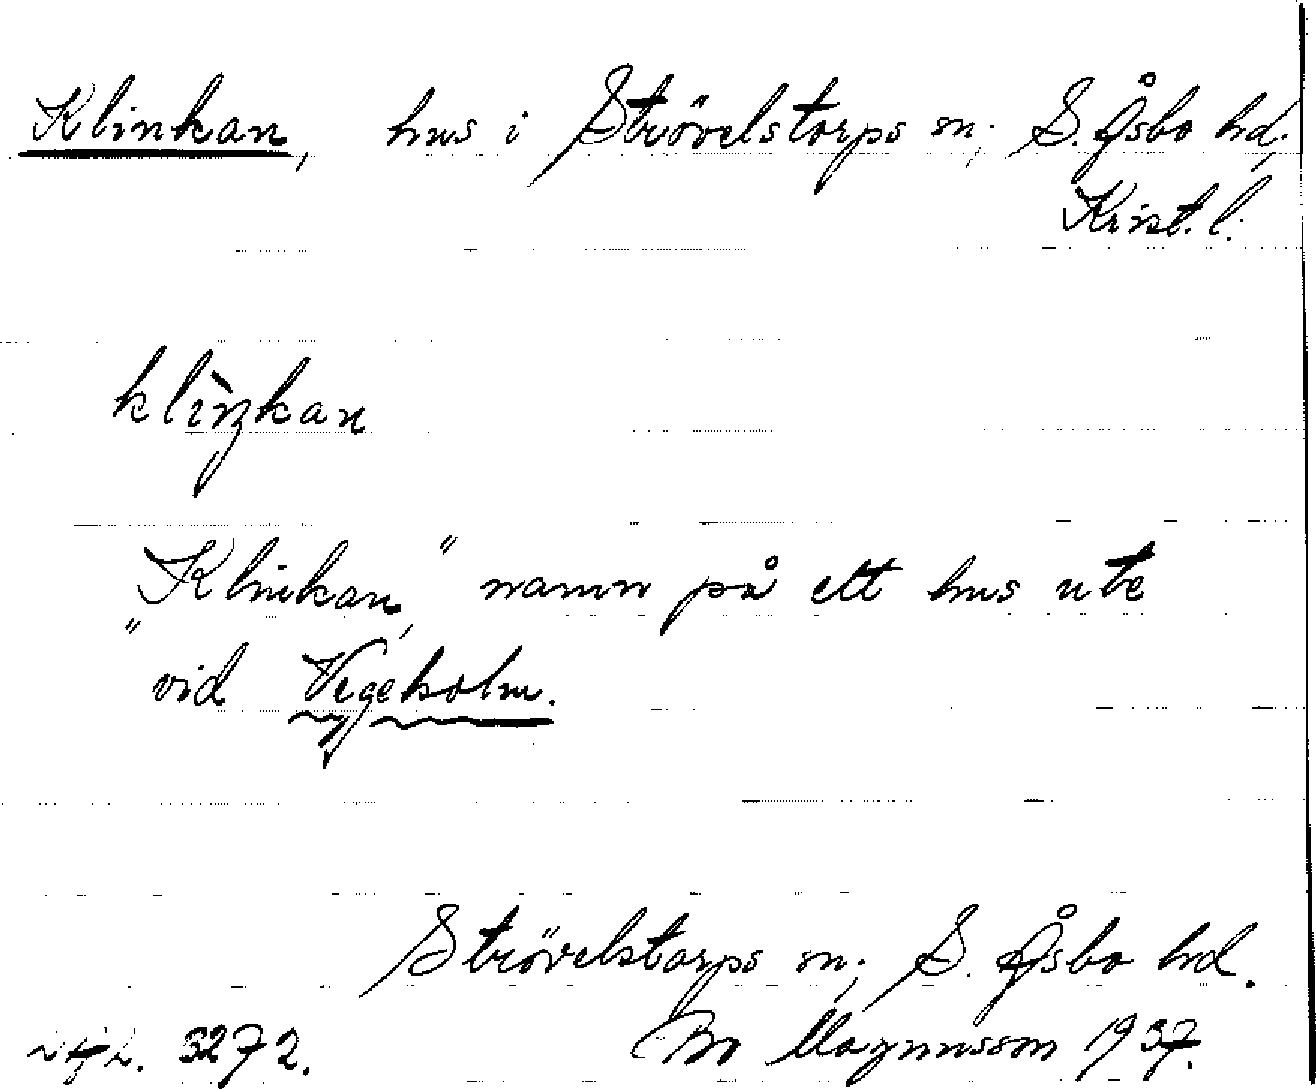 Klinkan, hus i Strövelstorps sn; S. Åsbo hd,
Krist. l.
klìŋkan
"Klinkan," namn på ett hus ute
vid Vegeholm.
Strövelstorps sn; S. Åsbo hd.
3272. Bo Magnusson 1937.